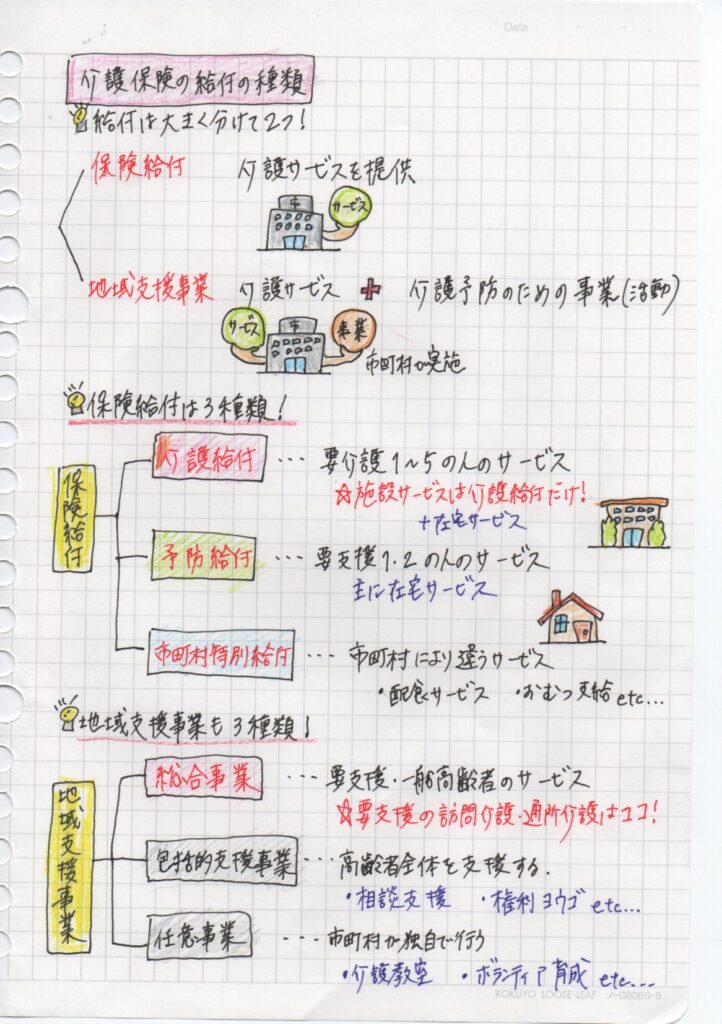 Date
介護保険の給付の種類
給付は大きく分けて2つ!
保険給付 介護サービスを提供
市 サービス
地域支援事業 介護サービス + 介護予防のための事業(活動)
サービス 市 事業
市町村が実施
保険給付は3種類!
保険給付
介護給付 … 要介護1~5の人のサービス
☆施設サービスは介護給付だけ!
+在宅サービス
予防給付 … 要支援1・2の人のサービス
主に在宅サービス
市町村特別給付 … 市町村により違うサービス
・配食サービス ・おむつ支給 etc...
地域支援事業も3種類!
地域支援事業
総合事業 … 要支援・一般高齢者のサービス
☆要支援の訪問介護・通所介護はココ!
包括的支援事業 … 高齢者全体を支援する.
・相談支援 ・権利ヨウゴ etc...
任意事業 … 市町村が独自で行う
・介護教室 ・ボランティア育成 etc...
KOKUYO LOOSE-LEAF ノ-G806S-5